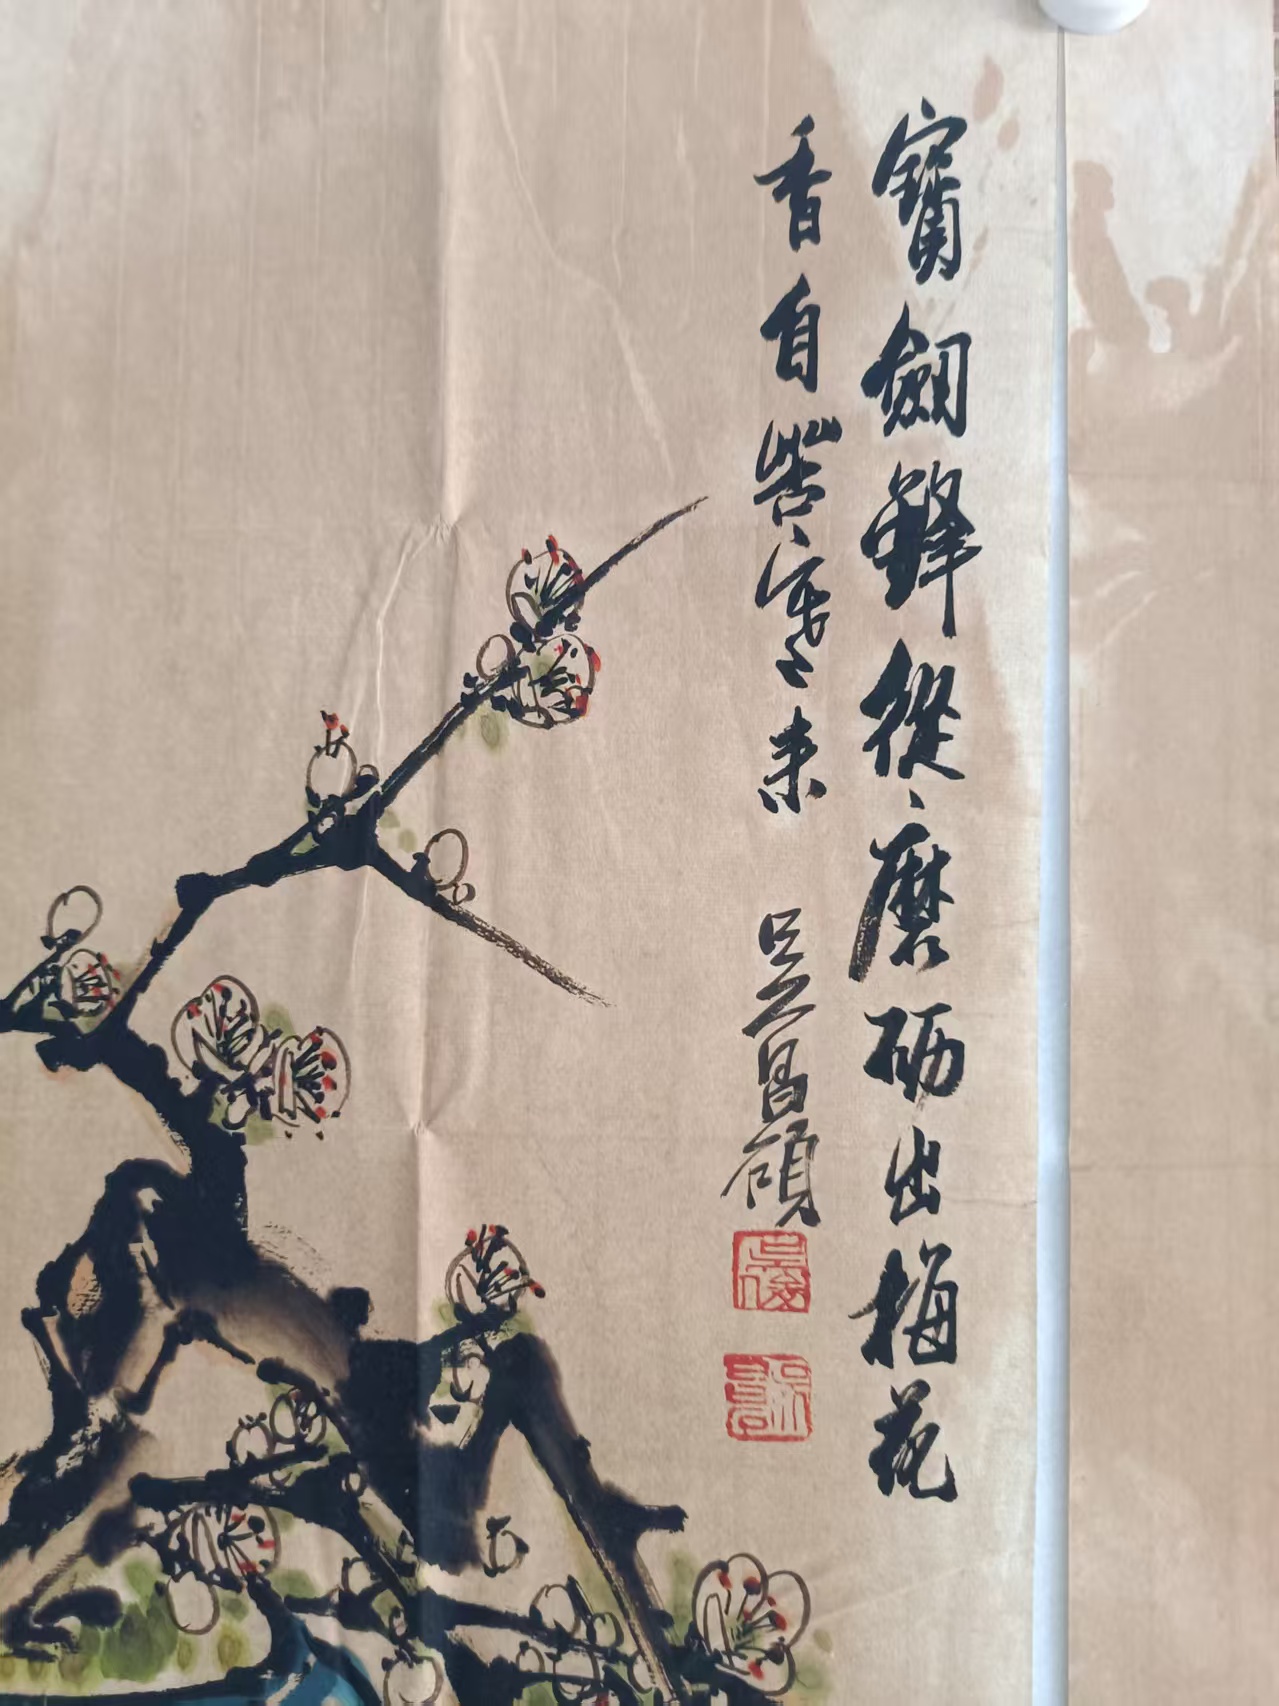 寶劒鋒從磨砺出梅花
香自苦寒来 吳昌碩